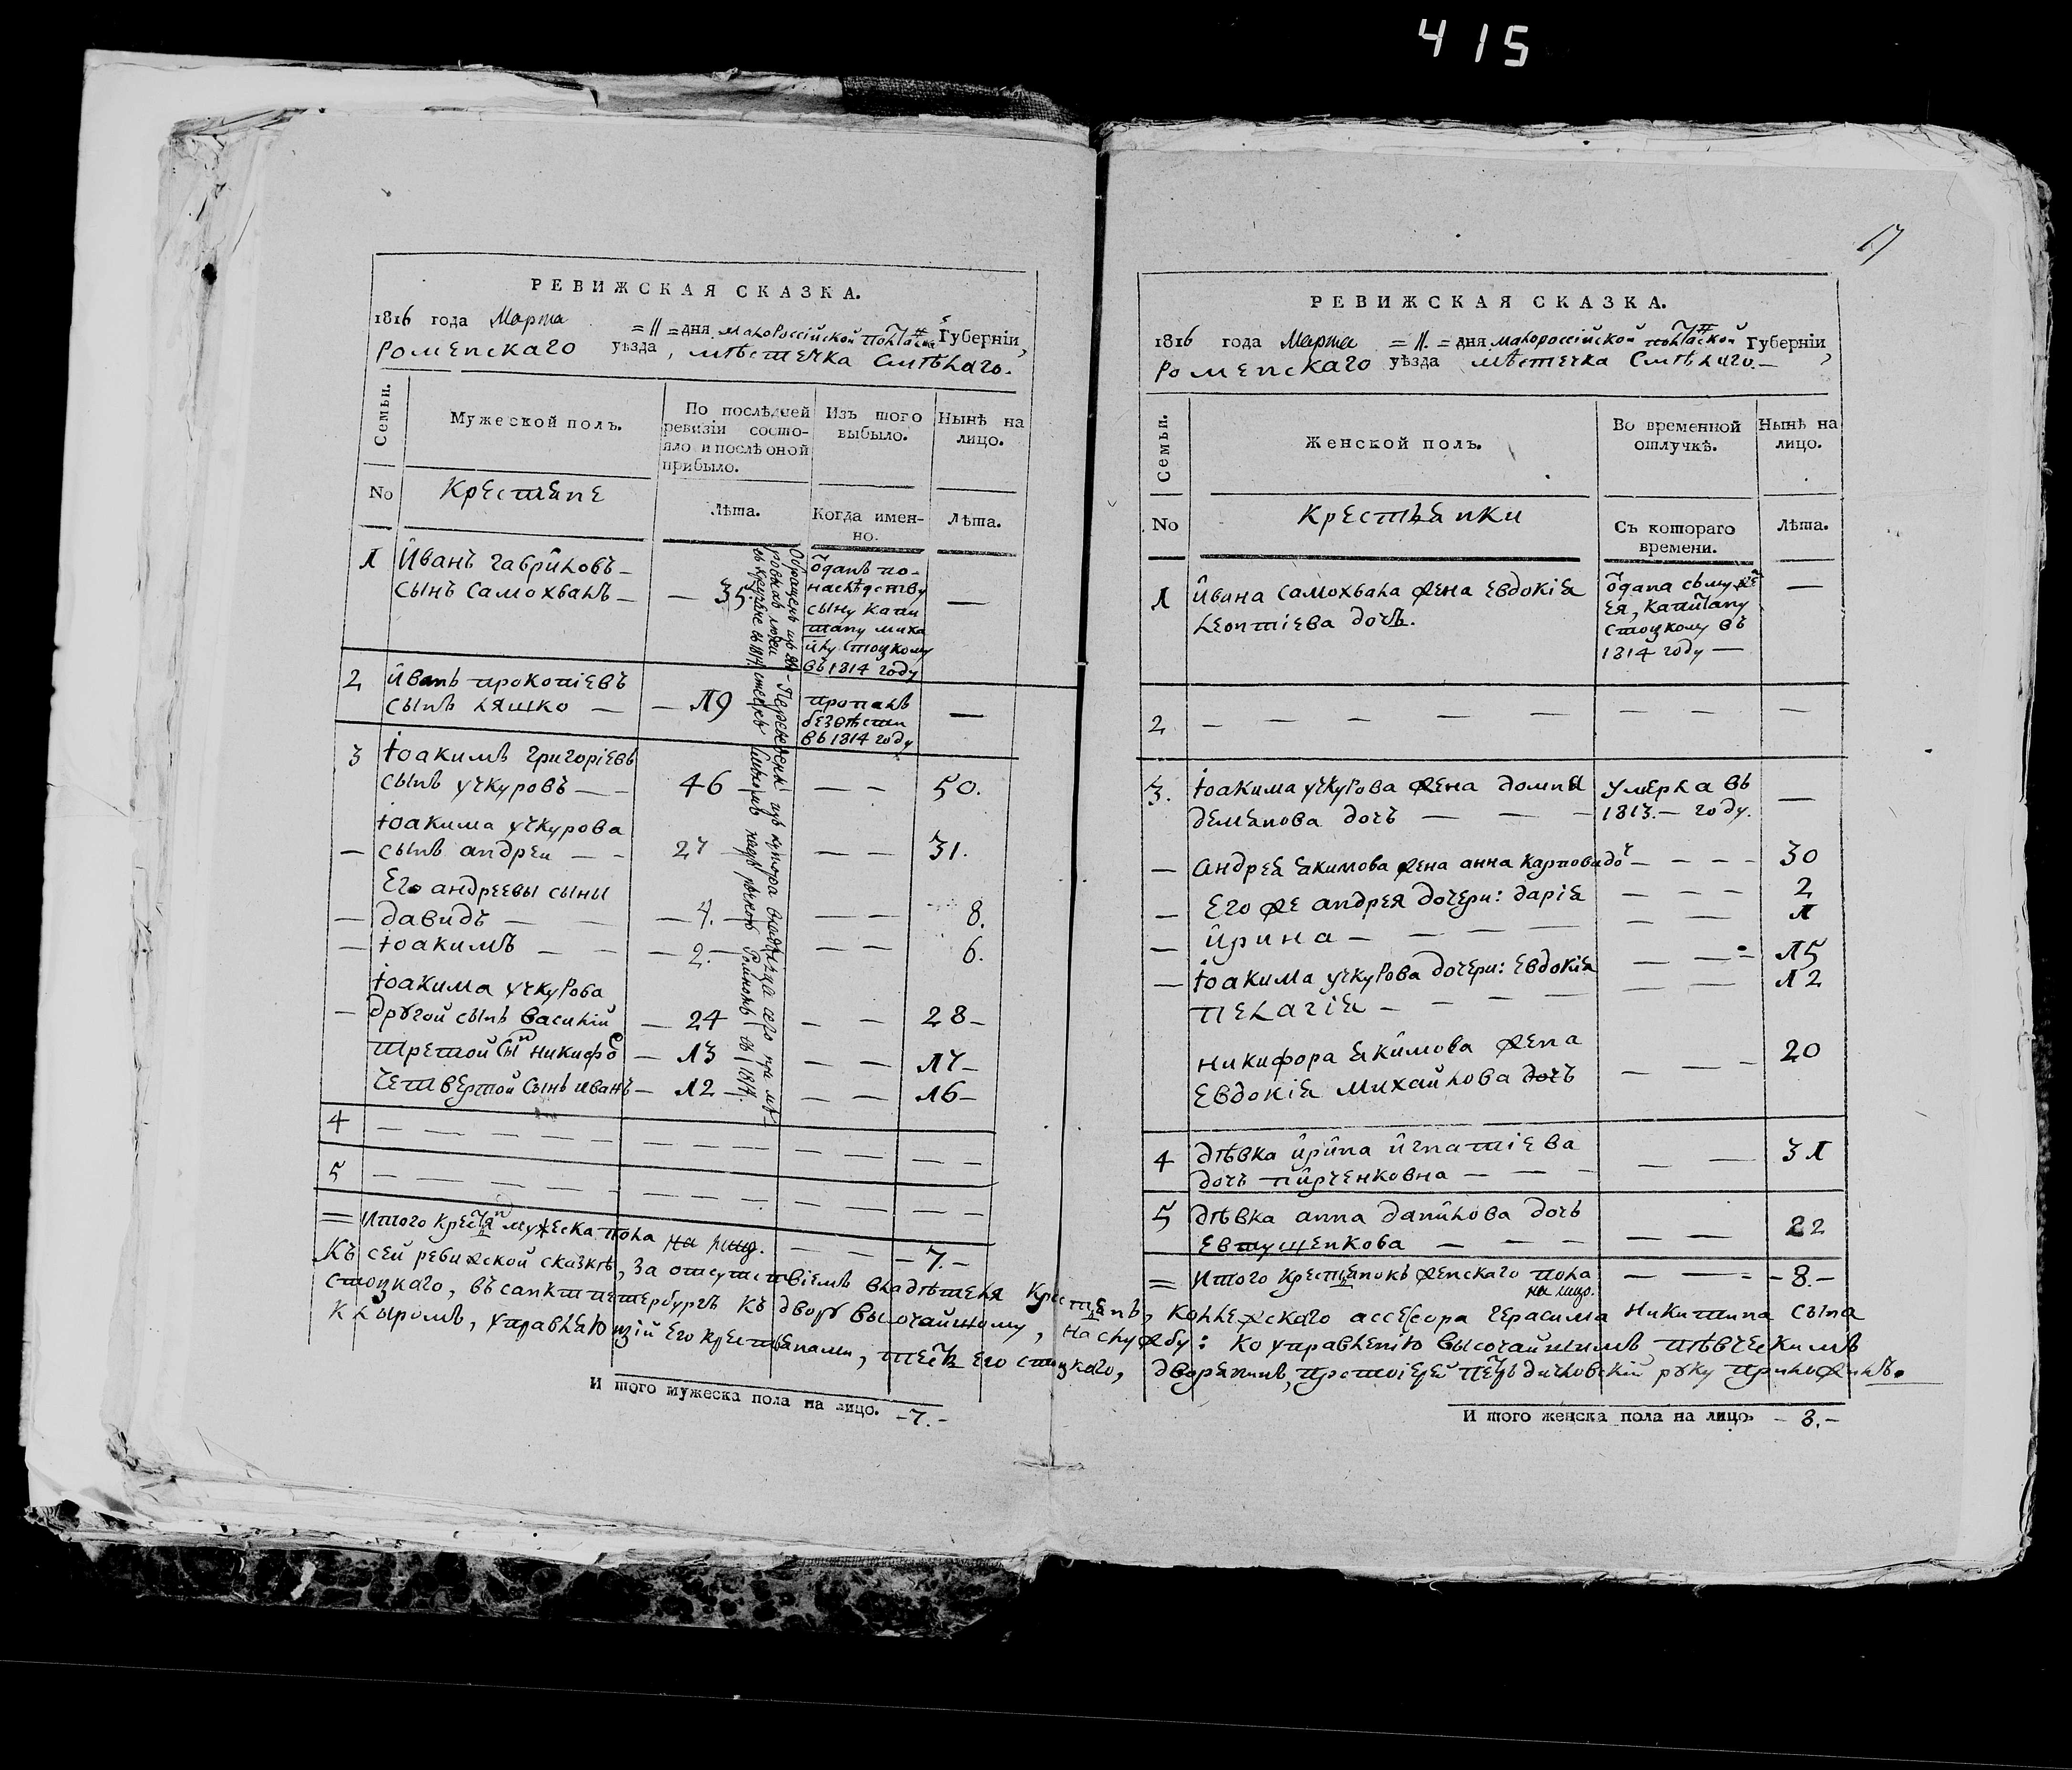 415
17
РЕВИЖСКАЯ СКАЗКА.
1816 года Марта = 11 = дня малороссійской Губерніи,
роменскаго уѣзда, мѣстечка Смѣлаго.
Семьи.
Мужеской полъ.
По послѣдней
ревизіи состо-
яло и послѣ оной
прибыло.
Изъ того
выбыло.
Нынѣ на
лицо.
No
Крестяне
Лѣта.
Когда имен-
но.
Лѣта.
1 Иванъ гавриловъ —
сынъ самохвалъ — — 35. —
ѡданъ по-
наслѣдству
сыну капи
тану миха
илу стоцкому
въ 1814 году
2 иванъ прокопіевъ
сынъ ляшко — — 19
пропалъ
безвѣсти
въ 1814 году
—
3 іоакимъ григоріевъ
сынъ учкуровъ — — 46 — — 50.
іоакима учкурова
— сынъ андреи — — 27 — — 31.
Его андреевы сыны
— давидъ — — 4. — — — 8.
— іоакимъ — — — 2. — — — 6.
іоакима учкурова
— другой сынъ василій — 24 — — 28 —
третой сын никифо — 13 — — 17 —
четвертой сынъ иванъ — 12 — — — 16 —
4 — — — — — —
5 — — — — — —
= Итого мужеска пола на лицо. — — 7. —
РЕВИЖСКАЯ СКАЗКА.
1816 года Марта = 11. = дня малороссійской Губерніи,
роменскаго уѣзда мѣстечка Смѣлаго. —
Семьи.
Женской полъ.
Во временной
отлучкѣ.
Нынѣ на
лицо.
No
Крестьянки
Съ котораго
времени.
Лѣта.
1 ивана самохвала жена евдокія
леонтіева дочъ.
ѡдана смуже
ея, капитану
стоцкому въ
1814 году —
—
2 — — — — — — — — —
3. іоакима учкурова жена домны умерла въ
деменова дочъ — — — 1813. — году.
—
— андрея якимова жена анна карпова до — — — — 30
— Его же андрея дочери: дарія — — — 2
— ирина — — — — — — 1
— іоакима учкурова дочери: Евдокія — — 15
пелагія — — — — — — 12
никифора якимова жена
Евдокія михайлова дочъ — — — 20
4 дѣвка ирина игнатіева
дочъ пирченковна — — — — — 31
5 дѣвка анна данилова дочъ
Евтущенкова — — — — — 22
= Итого крестянокъ женскаго пола
на лицо. — — 8. —
Къ сей ревижской сказкѣ, за отсутствіемъ владѣтеля крестянъ, коллежскаго ассесора герасима никитина сына
стоцкаго, въ санктпетербургъ къ двору высочайшому, на службу: ко управленію высочайшимъ пѣвческимъ
клыромъ, управляющій его крестянами, тесть его стоцкаго, дворянинъ, протоіерей руку приложилъ.
И того мужеска пола на лицо. — 7. —
И того женска пола на лицо. — 8. —